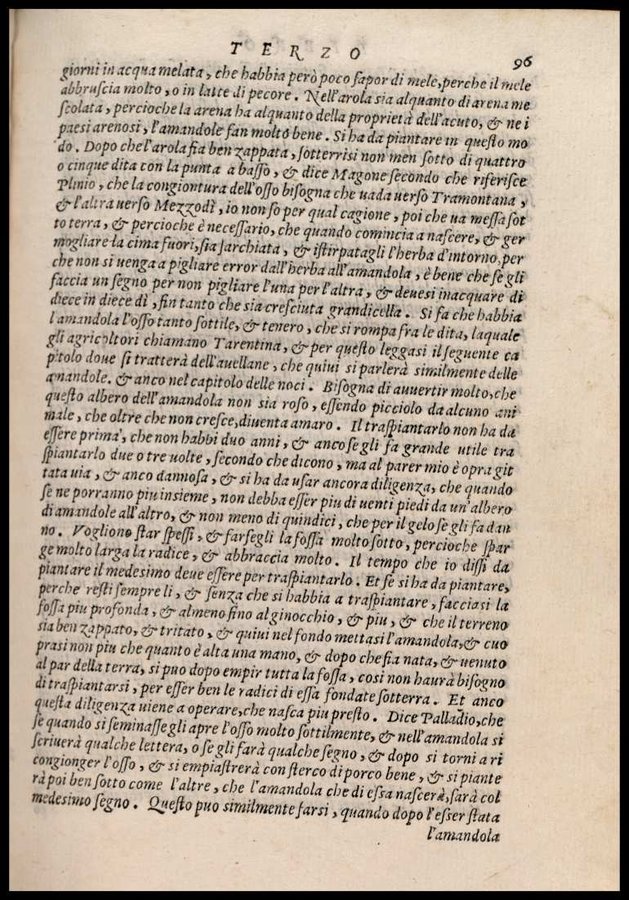 TERZO
96
giorni in acqua melata, che habbia però poco sapor di mele, perche il mele
abbruscia molto, o in latte di pecore. Nell'arola sia alquanto di arena me
scolata, percioche la arena ha alquanto della proprietà dell'acuto, & ne i
paesi arenosi, l'amandole fan molto bene. Si ha da piantare in questo mo
do. Dopo che l'arola sia ben zappata, sotterrisi non men sotto di quattro
o cinque dita con la punta a basso, & dice Magone secondo che riferisce
Plinio, che la congiontura dell'osso bisogna che uada uerso Tramontana,
& l'altra uerso Mezzodì, io non so per qual cagione, poi che ua messa sot
to terra, & percioche è necessario, che quando comincia a nascere, & ger
mogliare la cima fuori, sia sarchiata, & istirpatagli l'herba d'intorno, per
che non si uenga a pigliare error dall'herba all'amandola, è bene che se gli
faccia un segno per non pigliare l'una per l'altra, & deuesi inacquare di
diece in diece dì, fin tanto che sia cresciuta grandicella. Si fa che habbia
l'amandola l'osso tanto sottile, & tenero, che si rompa fra le dita, laquale
gli agricoltori chiamano Tarentina, & per questo leggasi il seguente ca
pitolo doue si tratterà dell'auellane, che quiui si parlerà similmente delle
amandole. & anco nel capitolo delle noci. Bisogna di auuertir molto, che
questo albero dell'amandola non sia roso, essendo picciolo da alcuno ani
male, che oltre che non cresce, diuenta amaro. Il traspiantarlo non ha da
essere prima, che non habbi duo anni, & anco se gli fa grande utile tra
spiantarlo due o tre uolte, secondo che dicono, ma al parer mio è opra git
tata uia, & anco dannosa, & si ha da usar ancora diligenza, che quando
se ne porranno piu insieme, non debba esser piu di uenti piedi da un'albero
di amandole all'altro, & non meno di quindici, che per il gelo se gli fa dan
no. Vogliono star spessi, & farsegli la fossa molto sotto, percioche spar
ge molto larga la radice, & abbraccia molto. Il tempo che io dissi da
piantare il medesimo deue essere per traspiantarlo. Et se si ha da piantare,
perche resti sempre lì, & senza che si habbia a traspiantare, facciasi la
fossa piu profonda, & almeno fino al ginocchio, & piu, & che il terreno
sia ben zappato, & tritato, & quiui nel fondo mettasi l'amandola, & cuo
prasi non piu che quanto è alta una mano, & dopo che sia nata, & uenuto
al par della terra, si puo dopo empir tutta la fossa, così non haurà bisogno
di traspiantarsi, per esser ben le radici di essa fondate sotterra. Et anco
questa diligenza uiene a operare, che nasca piu presto. Dice Palladio, che
se quando si seminasse gli apre l'osso molto sottilmente, & nell'amandola si
scriuerà qualche lettera, o se gli farà qualche segno, & dopo si torni a ri
congionger l'osso, & si empiastrerà con sterco di porco bene, & si piante
rà poi ben sotto come l'altre, che l'amandola che di essa nascerà, sarà col
medesimo segno. Questo puo similmente farsi, quando dopo l'esser stata
l'amandola